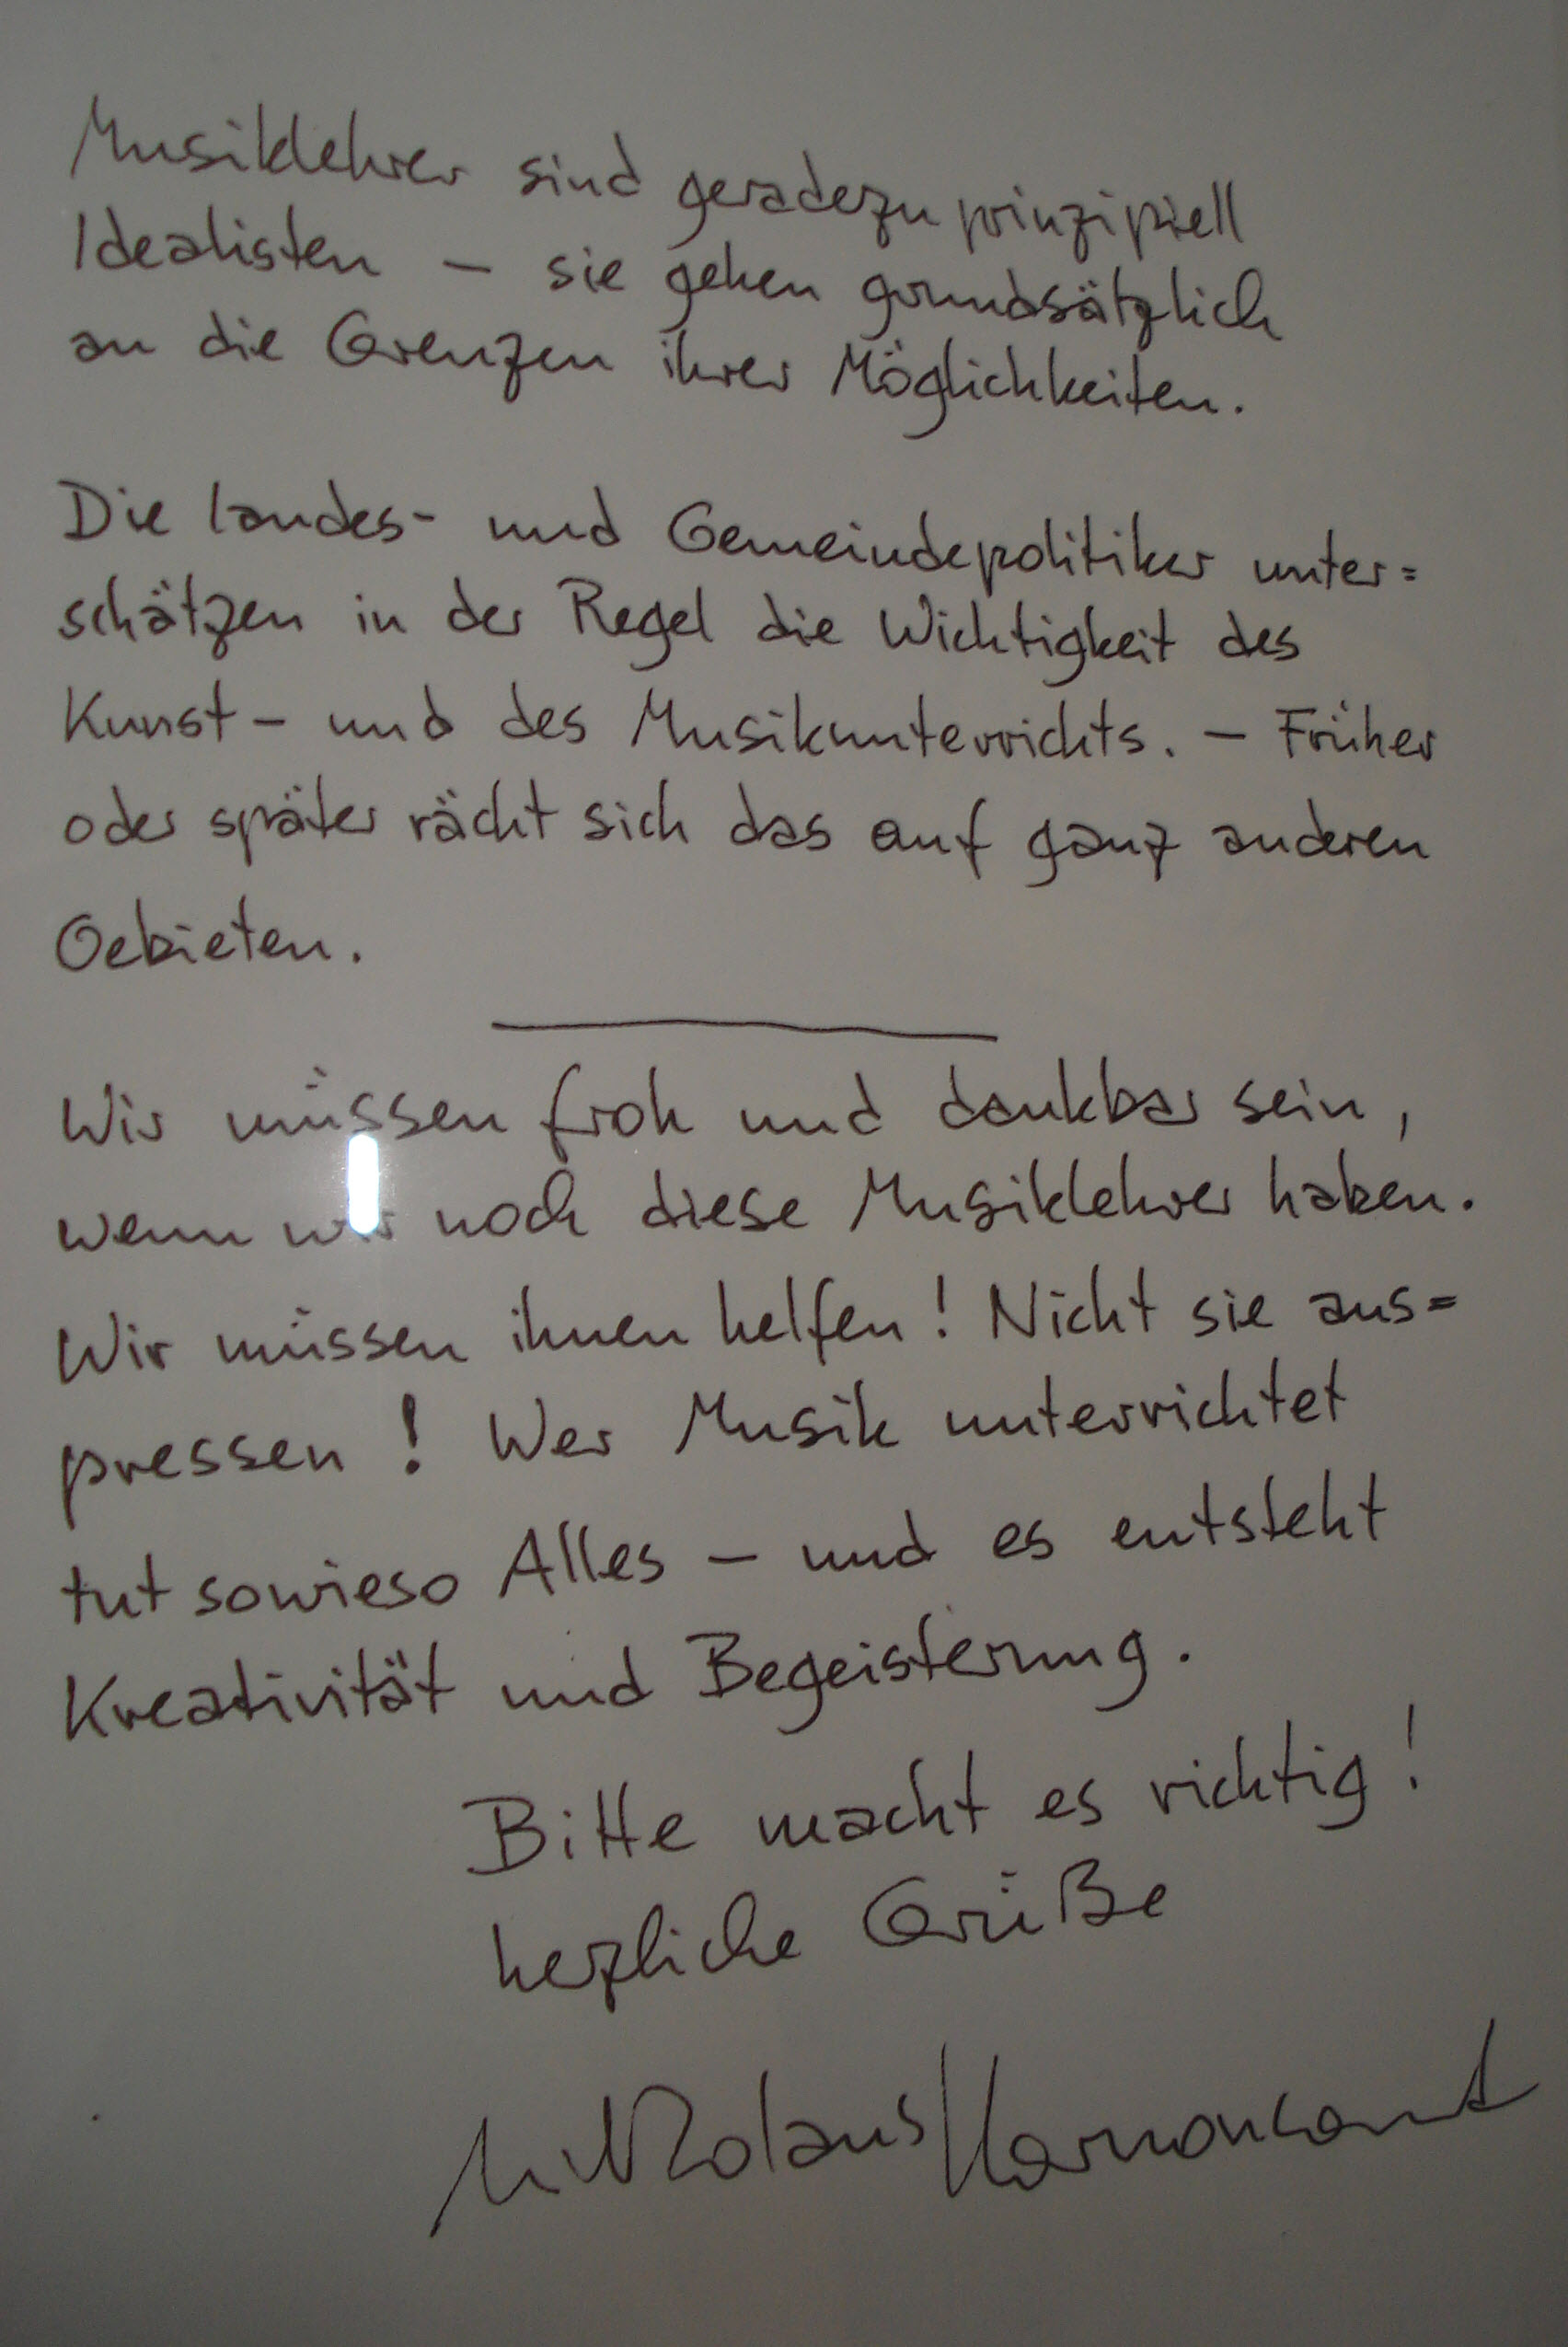 Musiklehrer sind geradezu prinzipiell
Idealisten – sie gehen grundsätzlich
an die Grenzen ihrer Möglichkeiten.
Die Landes- und Gemeindepolitiker unter=
schätzen in der Regel die Wichtigkeit des
Kunst- und des Musikunterrichts. – Früher
oder später rächt sich das auf ganz anderen
Gebieten.
Wir müssen froh und dankbar sein,
wenn wir noch diese Musiklehrer haben.
Wir müssen ihnen helfen! Nicht sie aus=
pressen! Wer Musik unterrichtet
tut sowieso Alles – und es entsteht
Kreativität und Begeisterung.
Bitte macht es richtig!
herzliche Grüße
Nikolaus Harnoncourt